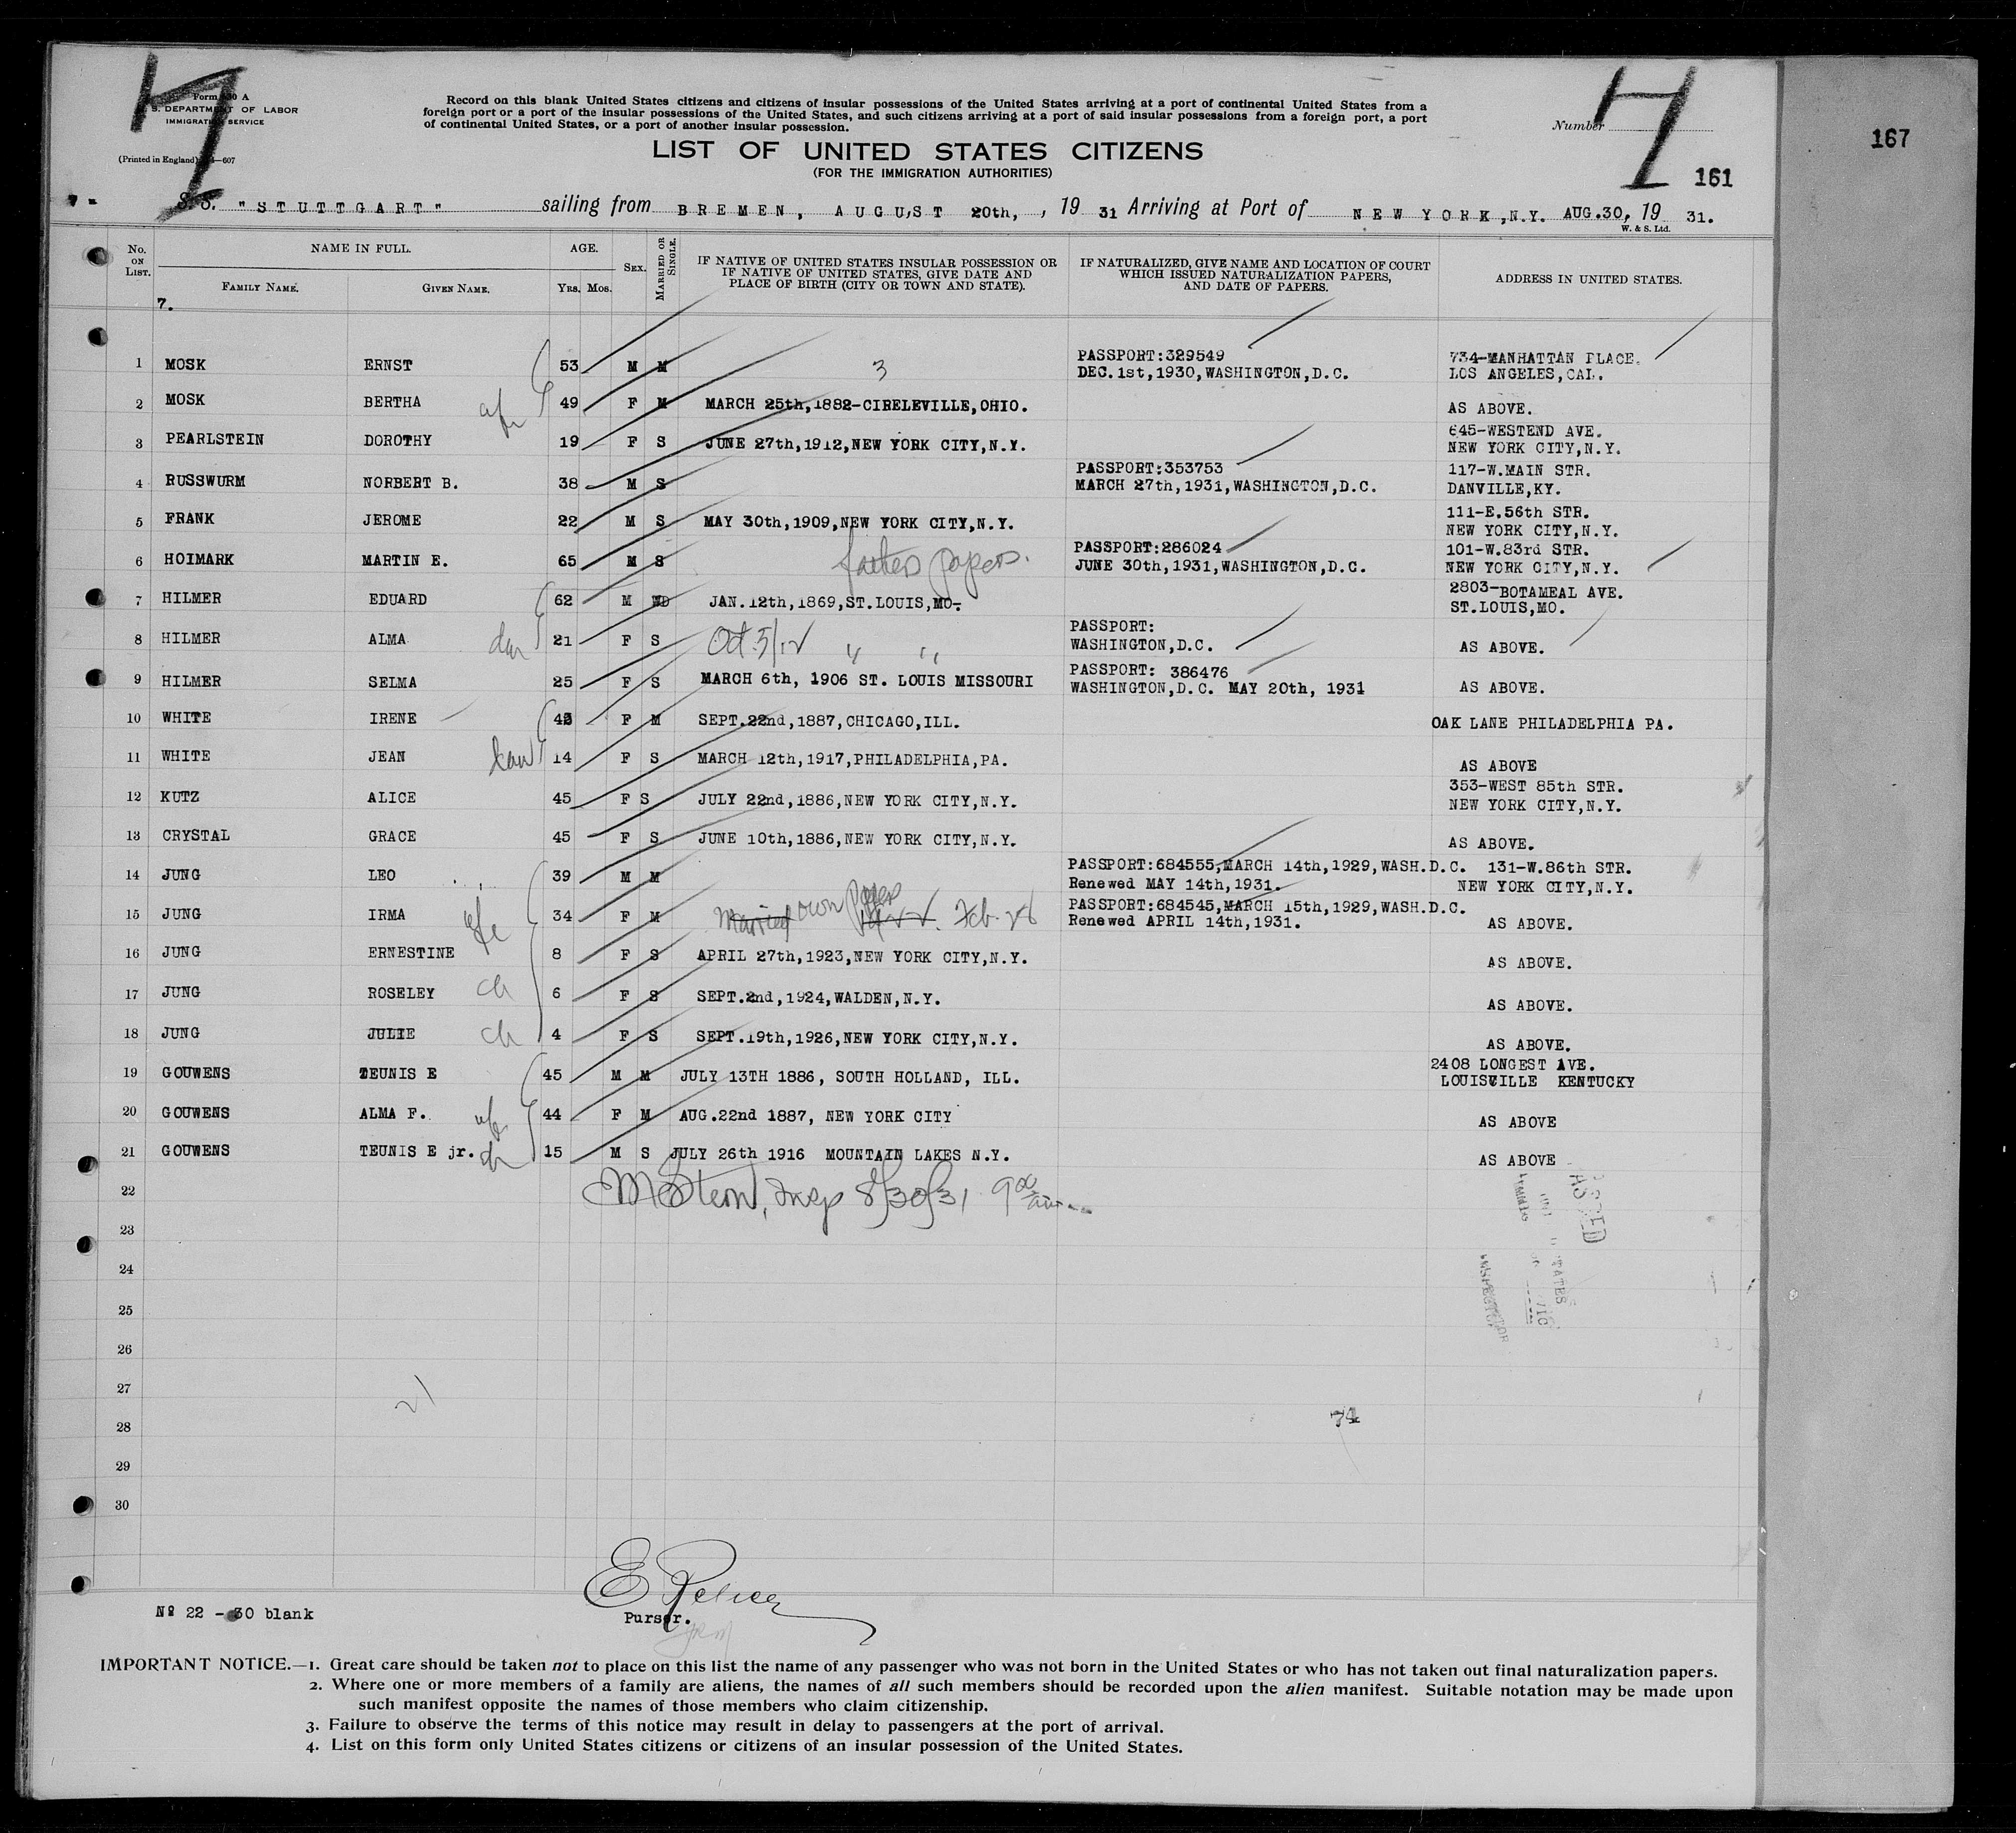 H
H
Form 630 A
U. S. DEPARTMENT OF LABOR
IMMIGRATION SERVICE
(Printed in England) —607
Record on this blank United States citizens and citizens of insular possessions of the United States arriving at a port of continental United States from a
foreign port or a port of the insular possessions of the United States, and such citizens arriving at a port of said insular possessions from a foreign port, a port
of continental United States, or a port of another insular possession.
Number
LIST OF UNITED STATES CITIZENS
(FOR THE IMMIGRATION AUTHORITIES)
161
167
7 - S. S. "STUTTGART" sailing from BREMEN, AUGUST 20th, , 19 31 Arriving at Port of NEW YORK, N.Y. AUG.30, 19 31.
W. & S. Ltd.
No. ON LIST. NAME IN FULL. AGE. SEX. MARRIED OR SINGLE. IF NATIVE OF UNITED STATES INSULAR POSSESSION OR IF NATIVE OF UNITED STATES, GIVE DATE AND PLACE OF BIRTH (CITY OR TOWN AND STATE). IF NATURALIZED, GIVE NAME AND LOCATION OF COURT WHICH ISSUED NATURALIZATION PAPERS, AND DATE OF PAPERS. ADDRESS IN UNITED STATES.
FAMILY NAME. GIVEN NAME. YRS. MOS.
7.
1 MOSK ERNST 53 M M 3 PASSPORT:329549 DEC.1st,1930,WASHINGTON,D.C. 734-MANHATTAN PLACE. LOS ANGELES,CAL.
2 MOSK BERTHA 49 F M MARCH 25th,1882-CIRELEVILLE,OHIO. AS ABOVE.
3 PEARLSTEIN DOROTHY 19 F S JUNE 27th,1912,NEW YORK CITY,N.Y. 645-WESTEND AVE. NEW YORK CITY,N.Y.
4 RUSSWURM NORBERT B. 38 M S PASSPORT:353753 MARCH 27th,1931,WASHINGTON,D.C. 117-W.MAIN STR. DANVILLE,KY.
5 FRANK JEROME 22 M S MAY 30th,1909,NEW YORK CITY,N.Y. 111-E.56th STR. NEW YORK CITY,N.Y.
6 HOIMARK MARTIN E. 65 M S fathers papers. PASSPORT:286024 JUNE 30th,1931,WASHINGTON,D.C. 101-W.83rd STR. NEW YORK CITY,N.Y.
7 HILMER EDUARD 62 M WD JAN.12th,1869,ST.LOUIS,MO. 2803-BOTAMEAL AVE. ST.LOUIS,MO.
8 HILMER ALMA dau 21 F S Oct 5/12 " " PASSPORT: WASHINGTON,D.C. AS ABOVE.
9 HILMER SELMA 25 F S MARCH 6th, 1906 ST. LOUIS MISSOURI PASSPORT: 386476 WASHINGTON,D.C. MAY 20th, 1931 AS ABOVE.
10 WHITE IRENE 43 F M SEPT.22nd,1887,CHICAGO,ILL. OAK LANE PHILADELPHIA PA.
11 WHITE JEAN dau 14 F S MARCH 12th,1917,PHILADELPHIA,PA. AS ABOVE
12 KUTZ ALICE 45 F S JULY 22nd,1886,NEW YORK CITY,N.Y. 353-WEST 85th STR. NEW YORK CITY,N.Y.
13 CRYSTAL GRACE 45 F S JUNE 10th,1886,NEW YORK CITY,N.Y. AS ABOVE.
14 JUNG LEO 39 M M PASSPORT:684555,MARCH 14th,1929,WASH.D.C. Renewed MAY 14th,1931. 131-W.86th STR. NEW YORK CITY,N.Y.
15 JUNG IRMA wfe 34 F M Married own papers Feb. 28 PASSPORT:684545,MARCH 15th,1929,WASH.D.C. Renewed APRIL 14th,1931. AS ABOVE.
16 JUNG ERNESTINE 8 F S APRIL 27th,1923,NEW YORK CITY,N.Y. AS ABOVE.
17 JUNG ROSELEY ch 6 F S SEPT.2nd,1924,WALDEN,N.Y. AS ABOVE.
18 JUNG JULIE ch 4 F S SEPT.19th,1926,NEW YORK CITY,N.Y. AS ABOVE.
19 GOUWENS TEUNIS E 45 M M JULY 13TH 1886, SOUTH HOLLAND, ILL. 2408 LONGEST AVE. LOUISVILLE KENTUCKY
20 GOUWENS ALMA F. wfe 44 F M AUG.22nd 1887, NEW YORK CITY AS ABOVE
21 GOUWENS TEUNIS E jr. ch 15 M S JULY 26th 1916 MOUNTAIN LAKES N.Y. AS ABOVE
22 M Stern, Insp 8/30/31 9 00 am
23
24
25
26
27
28
29
30
21
74
INSPECTOR
Nº 22 - 30 blank
Purser.
IMPORTANT NOTICE.—1. Great care should be taken not to place on this list the name of any passenger who was not born in the United States or who has not taken out final naturalization papers.
2. Where one or more members of a family are aliens, the names of all such members should be recorded upon the alien manifest. Suitable notation may be made upon
such manifest opposite the names of those members who claim citizenship.
3. Failure to observe the terms of this notice may result in delay to passengers at the port of arrival.
4. List on this form only United States citizens or citizens of an insular possession of the United States.